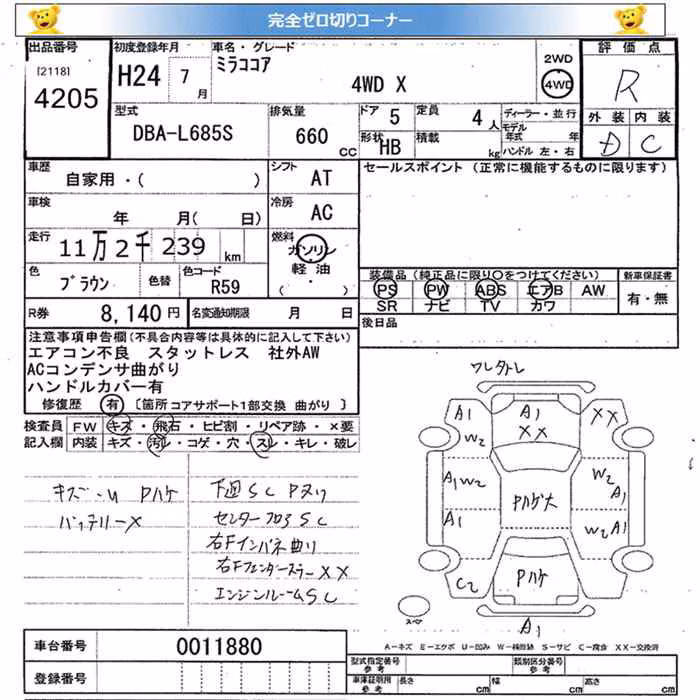 完全ゼロ切りコーナー
出品番号
[2118]
4205
初度登録年月
H24 7月
車名・グレード
ミラココア
4WD X
2WD
4WD
評価点
R
外装 内装
D C
型式
DBA-L685S
排気量
660 CC
ドア 5
定員 4人
形状 HB
積載 kg
ディーラー・並行
モデル年式 年
ハンドル 左・右
車歴
自家用・( )
シフト AT
車検
年 月( 日)
冷房 AC
走行
11万2千239 km
燃料
ガソリン
軽油
( )
色
ブラウン
色替
色コード
R59
R券 8,140円
名変通知期限 月 日
セールスポイント (正常に機能するものに限ります)
装備品(純正品に限り○をつけてください)
PS PW ABS エアB AW
SR ナビ TV カワ
新車保証書
有・無
後日品
注意事項申告欄(不具合内容等は具体的に記入して下さい)
エアコン不良 スタットレス 社外AW
ACコンデンサ曲がり
ハンドルカバー有
修復歴 有 〔箇所コアサポート1部交換 曲がり〕
検査員記入欄
FW キズ・飛石・ヒビ割・リペア跡・×要
内装 キズ・汚レ・コゲ・穴・スレ・キレ・破レ
Pハケ
バッテリー×
下廻SC Pヌリ
センターフロアSC
右Fインパネ曲り
右FフェンダーステーXX
エンジンルームSC
ワレタトレ
A1 A1 XX
W2 XX
A1W2 W2 A1
Pハゲ大
A1 W2A1
C2 Pハケ
スペア
A1
車台番号 0011880
登録番号
A-キズ E-エクボ U-凹み W-補修跡 S-サビ C-腐食 XX-交換済
型式指定番号 参考
類別区分番号 参考
車庫証明用 参考
長さ cm 幅 cm 高さ cm